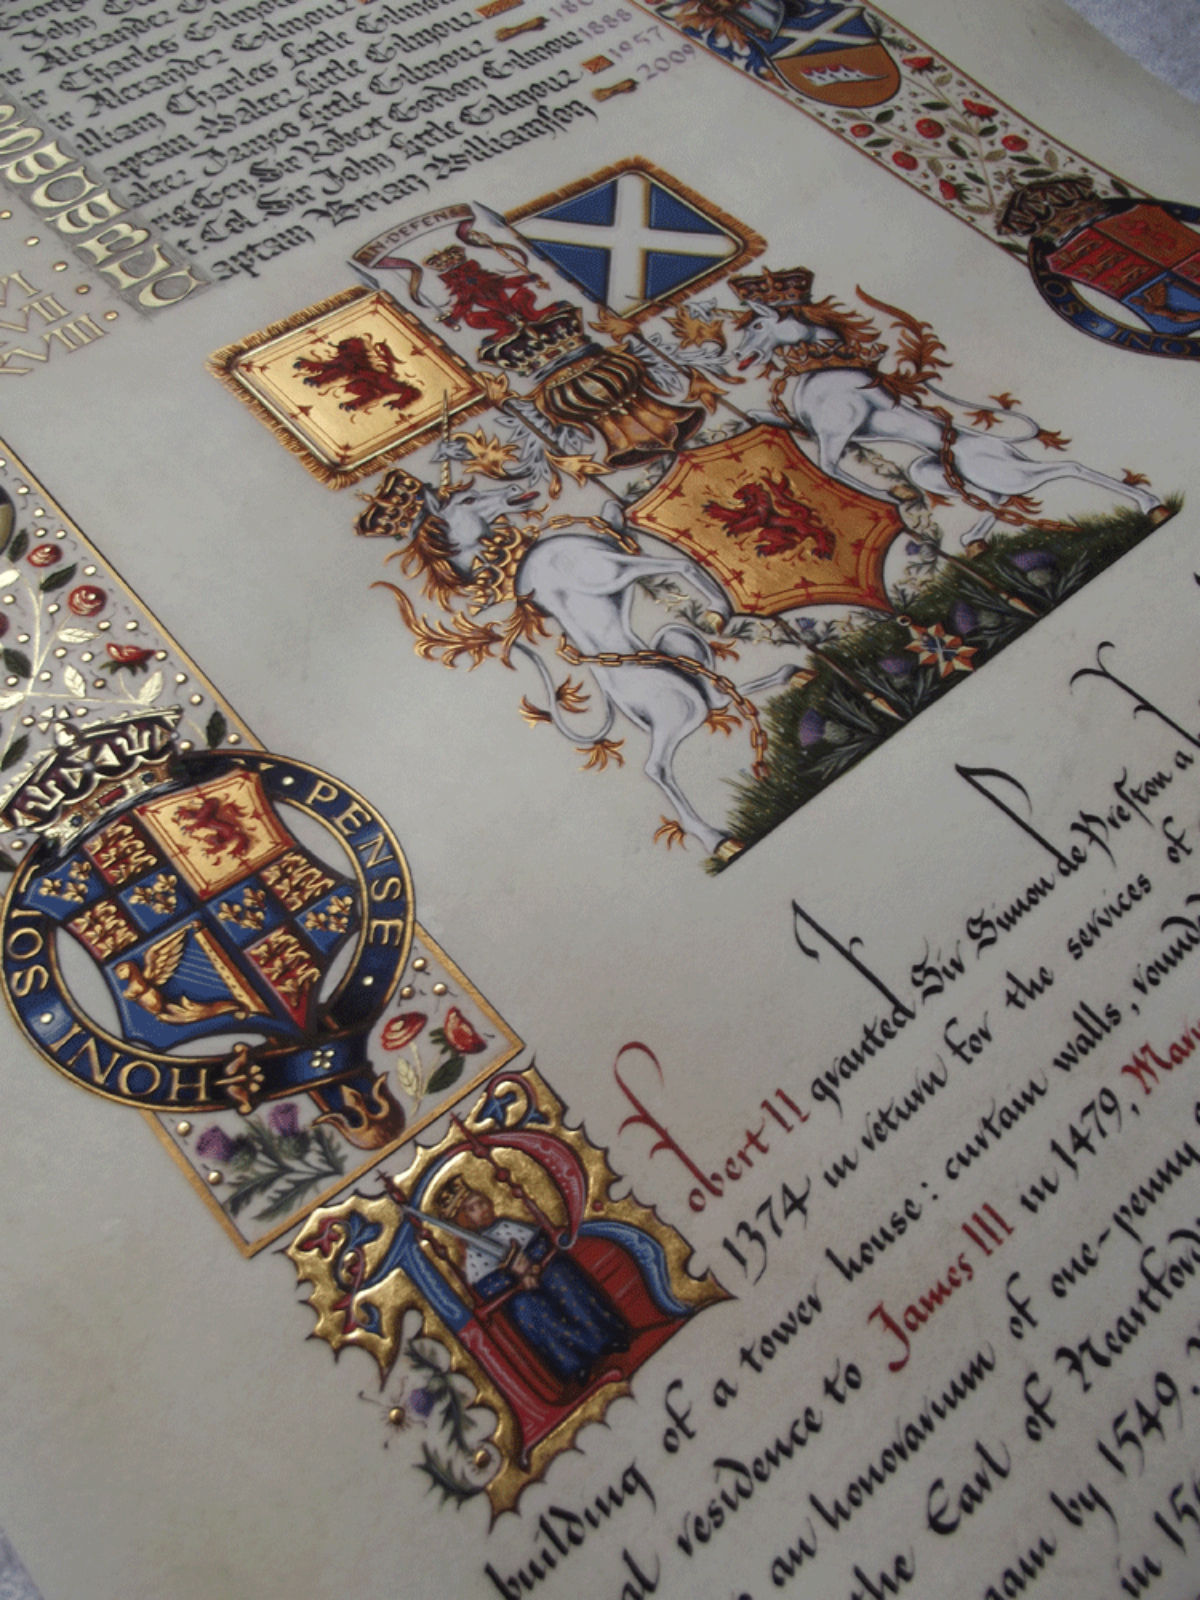 John
Alexander Gilmour
Charles Gilmour
Alexander Gilmour
William Charles Little Gilmour
aptain Walter Little Gilmour
alter James Little Gilmour
Brig Gen Sir Robert Gordon Gilmour 1888
t. Col Sir John Little Gilmour 1957
aptain Brian Williamson 2009
VI
VII
VIII
IN·DEFENS
HONI · SOI
HONI · SOI · PENSE ·
obert II granted Sir Simon de Preston a
1374 in return for the services of
building of a tower house: curtain walls, round
al residence to James III in 1479, Mar
an honorarium of one-penny
the Earl of
again by 1549,
in 15